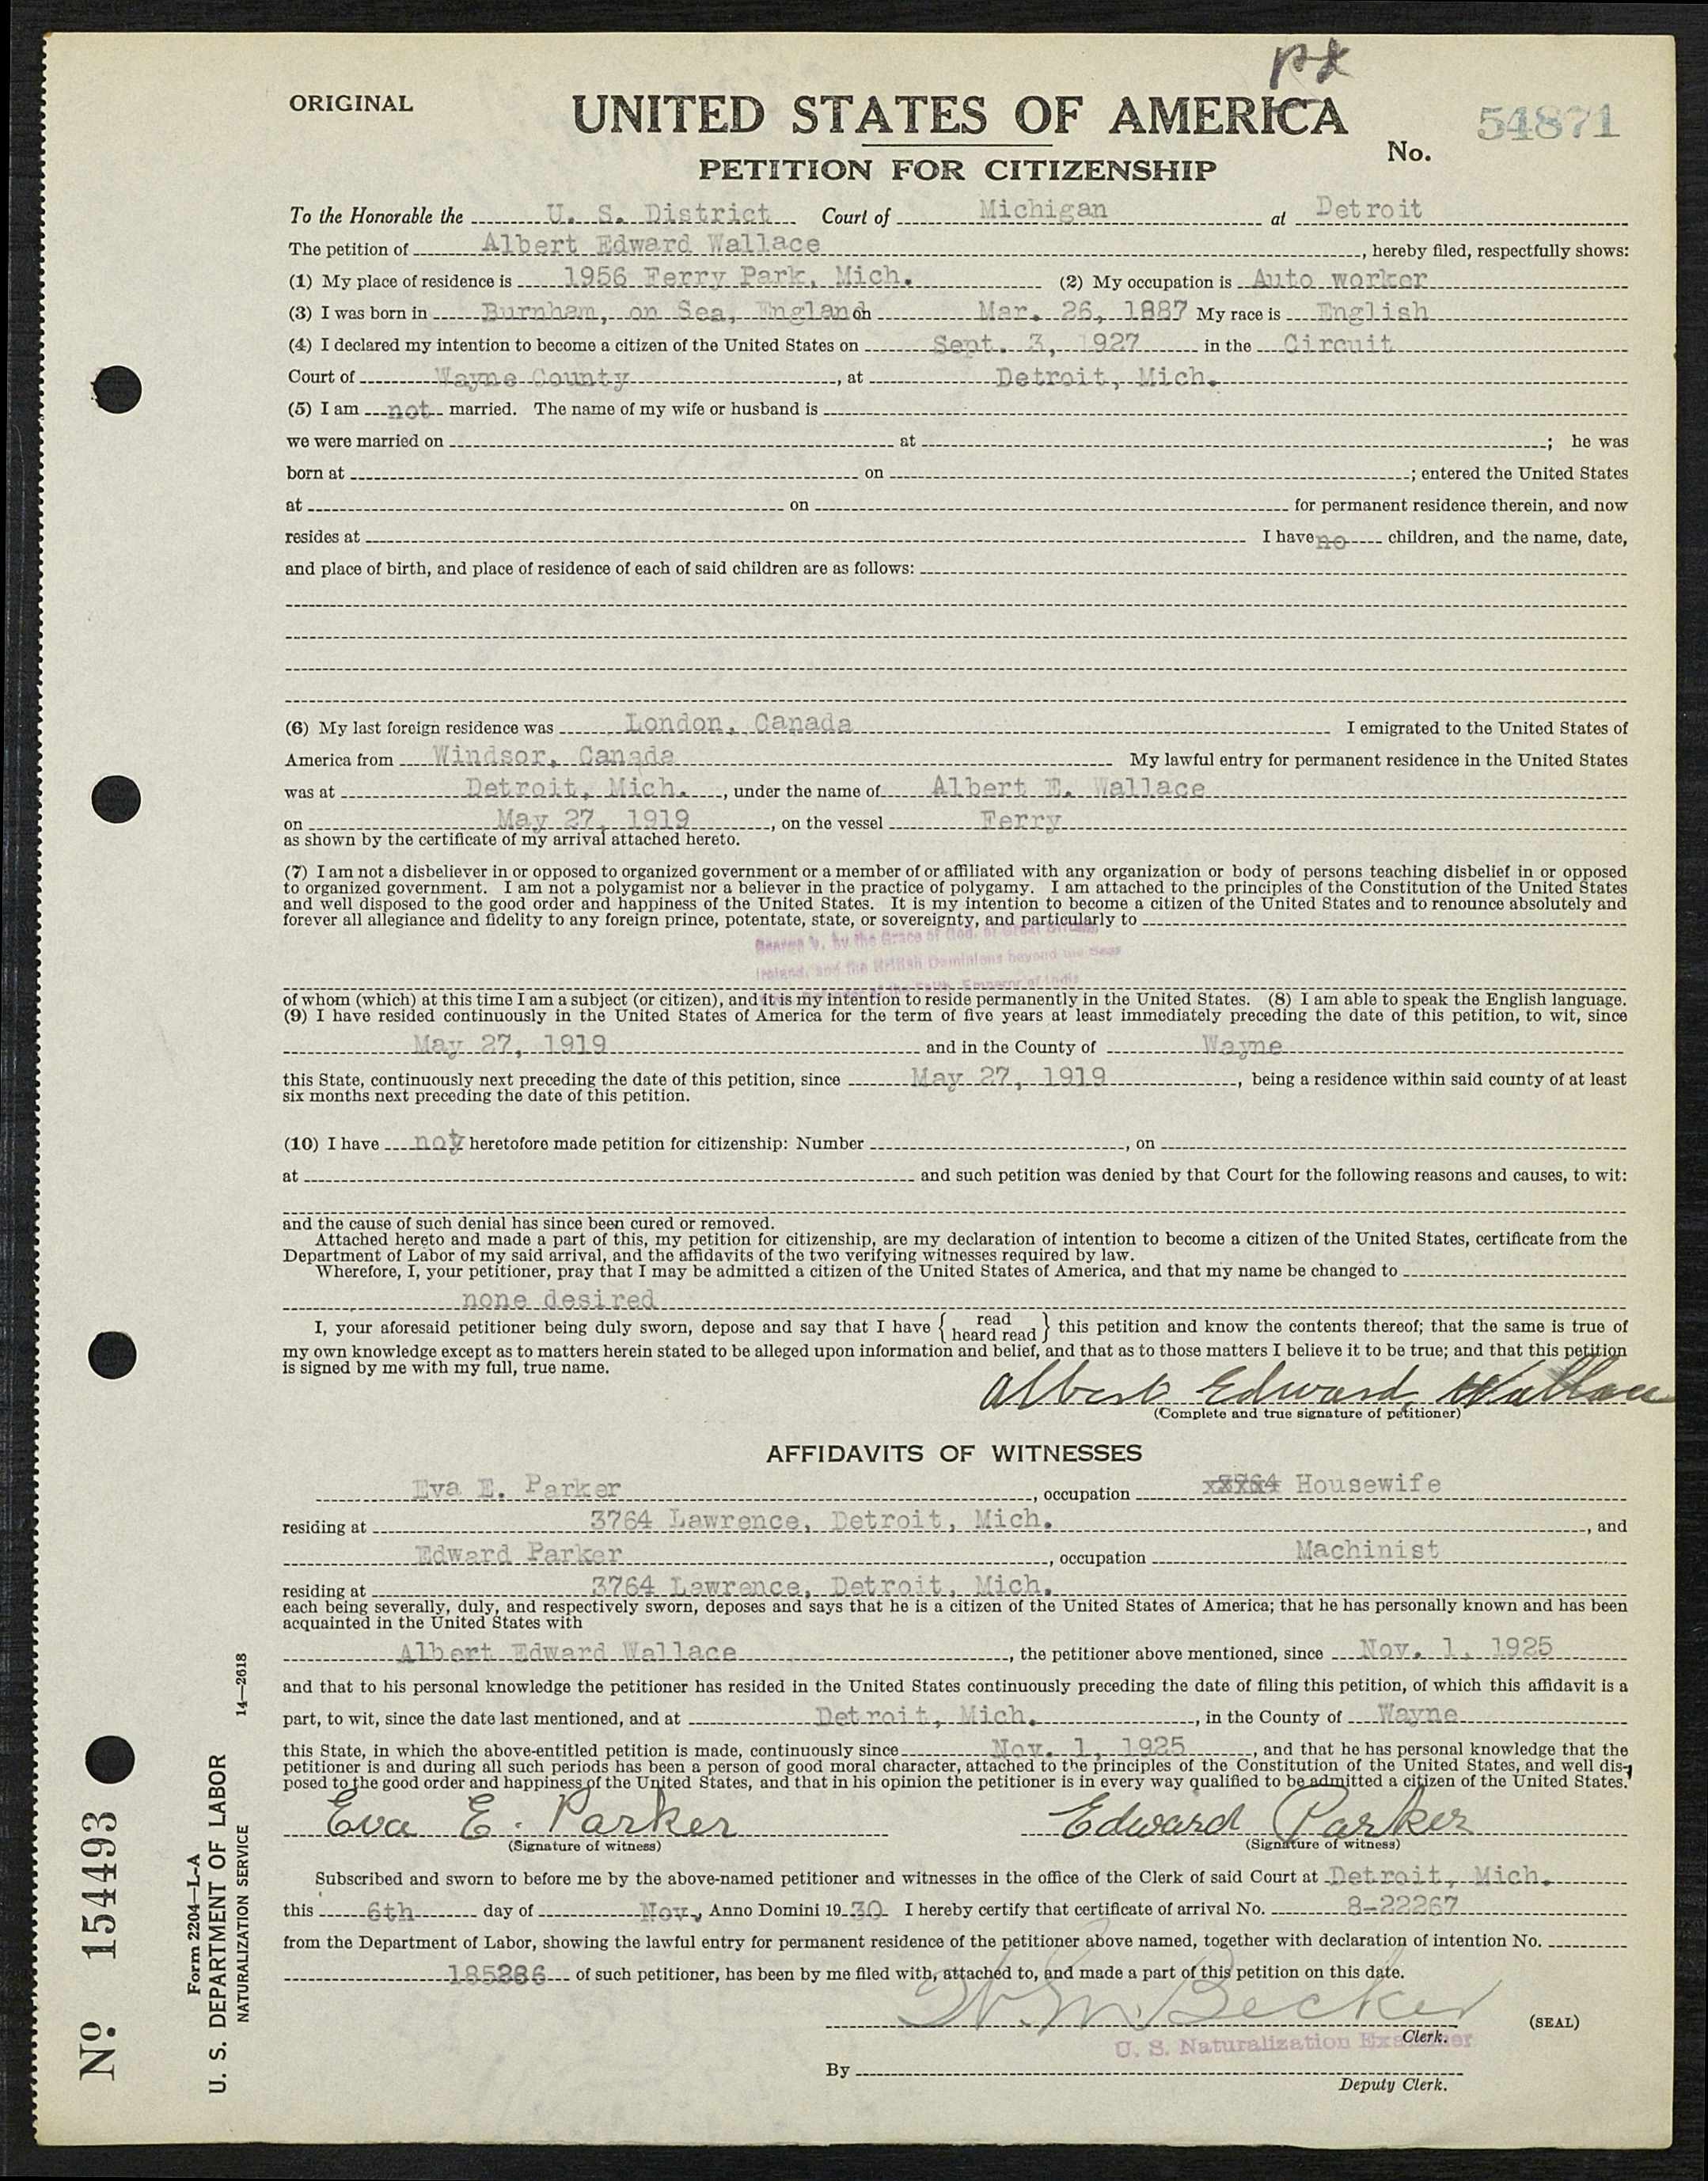 ORIGINAL
UNITED STATES OF AMERICA
54871
No.
PETITION FOR CITIZENSHIP
To the Honorable the U. S. District Court of Michigan at Detroit
The petition of Albert Edward Wallace, hereby filed, respectfully shows:
(1) My place of residence is 1956 Ferry Park, Mich. (2) My occupation is Auto worker
(3) I was born in Burnham, on Sea, England on Mar. 26, 1887 My race is English
(4) I declared my intention to become a citizen of the United States on Sept. 3, 1927 in the Circuit
Court of Wayne County, at Detroit, Mich.
(5) I am not married. The name of my wife or husband is
we were married on at ; he was
born at on ; entered the United States
at on for permanent residence therein, and now
resides at I have no children, and the name, date,
and place of birth, and place of residence of each of said children are as follows:
(6) My last foreign residence was London, Canada I emigrated to the United States of
America from Windsor, Canada My lawful entry for permanent residence in the United States
was at Detroit, Mich., under the name of Albert E. Wallace
on May 27, 1919, on the vessel Ferry
as shown by the certificate of my arrival attached hereto.
(7) I am not a disbeliever in or opposed to organized government or a member of or affiliated with any organization or body of persons teaching disbelief in or opposed
to organized government. I am not a polygamist nor a believer in the practice of polygamy. I am attached to the principles of the Constitution of the United States
and well disposed to the good order and happiness of the United States. It is my intention to become a citizen of the United States and to renounce absolutely and
forever all allegiance and fidelity to any foreign prince, potentate, state, or sovereignty, and particularly to
George V. by the Grace of God, of Great Britain,
Ireland, and the British Dominions beyond the Seas
Defender of the Faith, Emperor of India
of whom (which) at this time I am a subject (or citizen), and it is my intention to reside permanently in the United States. (8) I am able to speak the English language.
(9) I have resided continuously in the United States of America for the term of five years at least immediately preceding the date of this petition, to wit, since
May 27, 1919 and in the County of Wayne
this State, continuously next preceding the date of this petition, since May 27, 1919, being a residence within said county of at least
six months next preceding the date of this petition.
(10) I have not heretofore made petition for citizenship: Number , on
at and such petition was denied by that Court for the following reasons and causes, to wit:
and the cause of such denial has since been cured or removed.
Attached hereto and made a part of this, my petition for citizenship, are my declaration of intention to become a citizen of the United States, certificate from the
Department of Labor of my said arrival, and the affidavits of the two verifying witnesses required by law.
Wherefore, I, your petitioner, pray that I may be admitted a citizen of the United States of America, and that my name be changed to
none desired
I, your aforesaid petitioner being duly sworn, depose and say that I have { read heard read } this petition and know the contents thereof; that the same is true of
my own knowledge except as to matters herein stated to be alleged upon information and belief, and that as to those matters I believe it to be true; and that this petition
is signed by me with my full, true name.
Albert Edward Wallace
(Complete and true signature of petitioner)
AFFIDAVITS OF WITNESSES
Eva E. Parker, occupation Housewife
residing at 3764 Lawrence, Detroit, Mich., and
Edward Parker, occupation Machinist
residing at 3764 Lawrence, Detroit, Mich.
each being severally, duly, and respectively sworn, deposes and says that he is a citizen of the United States of America; that he has personally known and has been
acquainted in the United States with
Albert Edward Wallace, the petitioner above mentioned, since Nov. 1, 1925
and that to his personal knowledge the petitioner has resided in the United States continuously preceding the date of filing this petition, of which this affidavit is a
part, to wit, since the date last mentioned, and at Detroit, Mich., in the County of Wayne
this State, in which the above-entitled petition is made, continuously since Nov. 1, 1925, and that he has personal knowledge that the
petitioner is and during all such periods has been a person of good moral character, attached to the principles of the Constitution of the United States, and well dis-
posed to the good order and happiness of the United States, and that in his opinion the petitioner is in every way qualified to be admitted a citizen of the United States.
Eva E. Parker Edward Parker
(Signature of witness) (Signature of witness)
Subscribed and sworn to before me by the above-named petitioner and witnesses in the office of the Clerk of said Court at Detroit, Mich.
this 6th day of Nov., Anno Domini 1930 I hereby certify that certificate of arrival No. 8-22267
from the Department of Labor, showing the lawful entry for permanent residence of the petitioner above named, together with declaration of intention No.
185286 of such petitioner, has been by me filed with, attached to, and made a part of this petition on this date.
Becker
(SEAL)
Clerk.
U. S. Naturalization Examiner
By
Deputy Clerk.
No. 154493
Form 2204—L-A
U. S. DEPARTMENT OF LABOR
NATURALIZATION SERVICE
14—2618